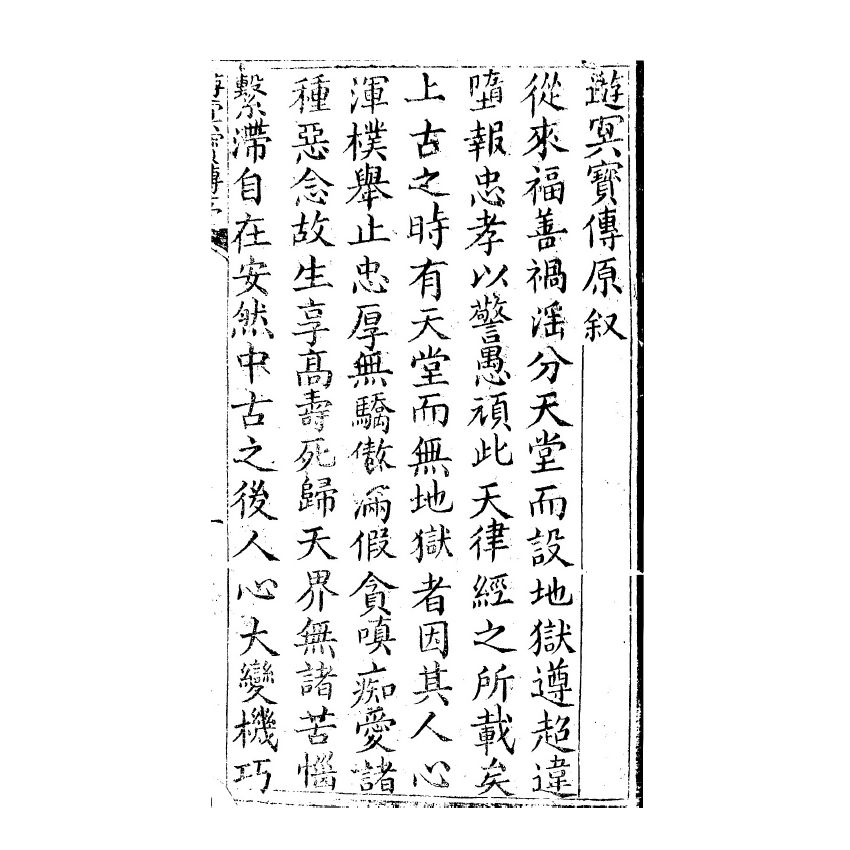 遊冥寶傳原叙
從來福善禍滛分天堂而設地獄遵超違
墮報忠孝以警愚頑此天律經之所載矣
上古之時有天堂而無地獄者因其人心
渾樸舉止忠厚無驕傲滿假貪嗔痴愛諸
種惡念故生享髙壽死歸天界無諸苦惱
繫滯自在安然中古之後人心大變機巧
一